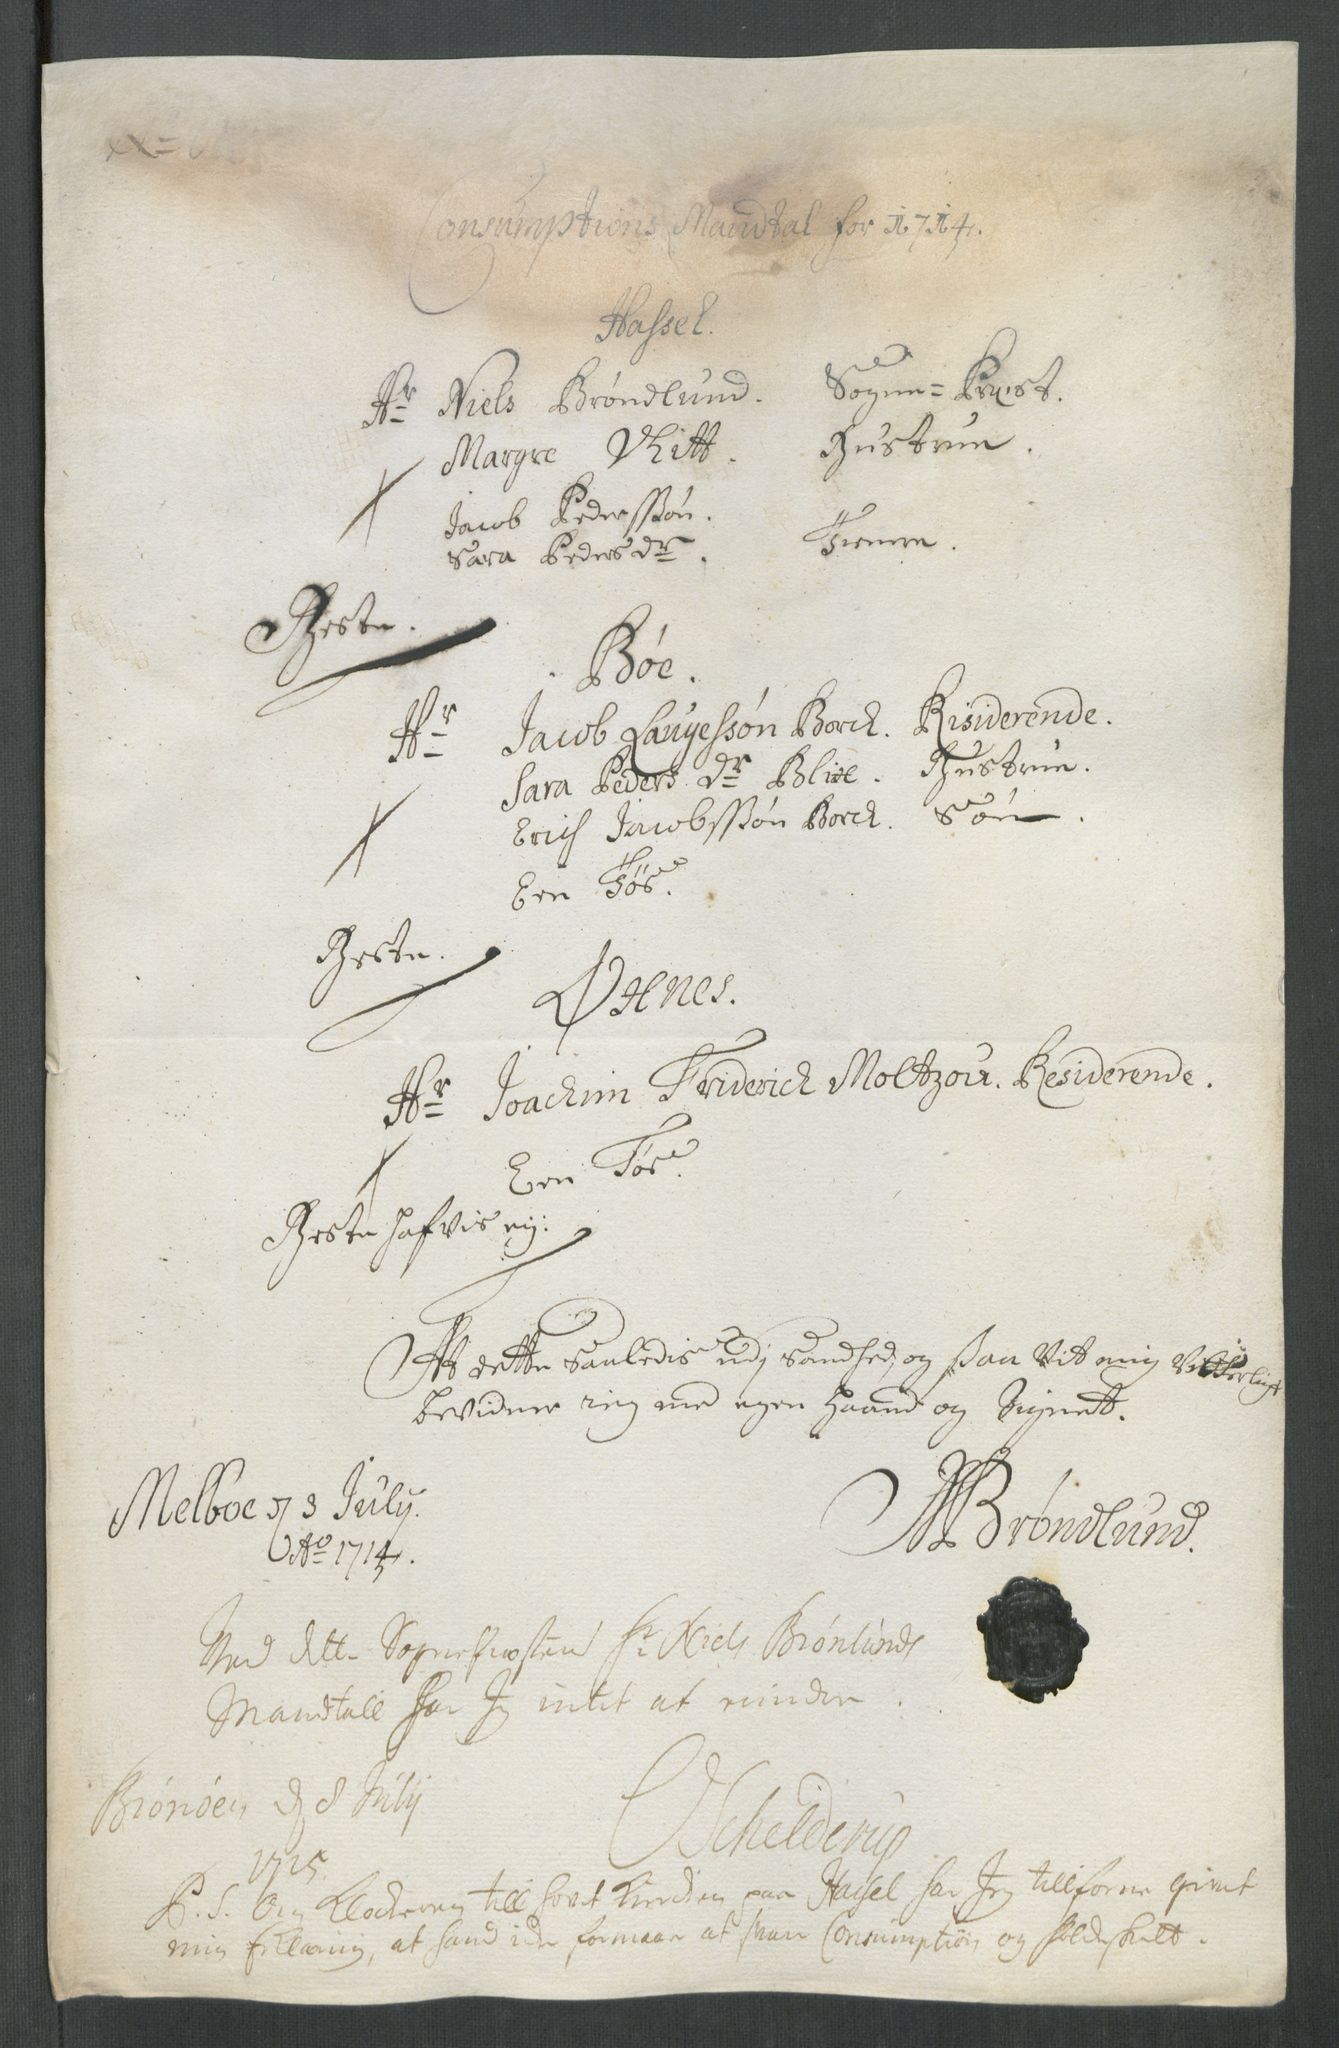 Consumptions Mandtal for 1714.
Hassel.
Hr Niels Brøndlund. Sogne=Præst.
Margre Hitt. Hustrue.
Jacob Pederssøn.
Sara Peders dr. Tienere.
Heste.
Bøe.
Hr Jacob Laugessøn Borch. Risiderende.
Sara Peders dr Blix. Hustrue.
Erich Jacobssøn Borch. Søn.
Een Tøs.
Heste.
Øxnes.
Hr Joachim Friderich Moltzou. Residerende.
Een Tøs.
Heste hafvis ey.
At dette saaledis udj Sandhed, og saa vit mig vitterligt
bevidner ieg med egen Haand og Signett.
Melboe d 3 July.
Ao 1714.
NBrøndlund.
Ved dette Sognepræsten Hr Niels Brønlunds
Mandtall har Jeg intet at eindre.
Brönöen d 8 Julij
1715.
OSchelderup
P. S. Om Klockeren till hovet Kirchen paa Hassel har Jeg tillforne givet
min Erklæring, at hand icke formaar at svare Consumption og Folcheskatt.